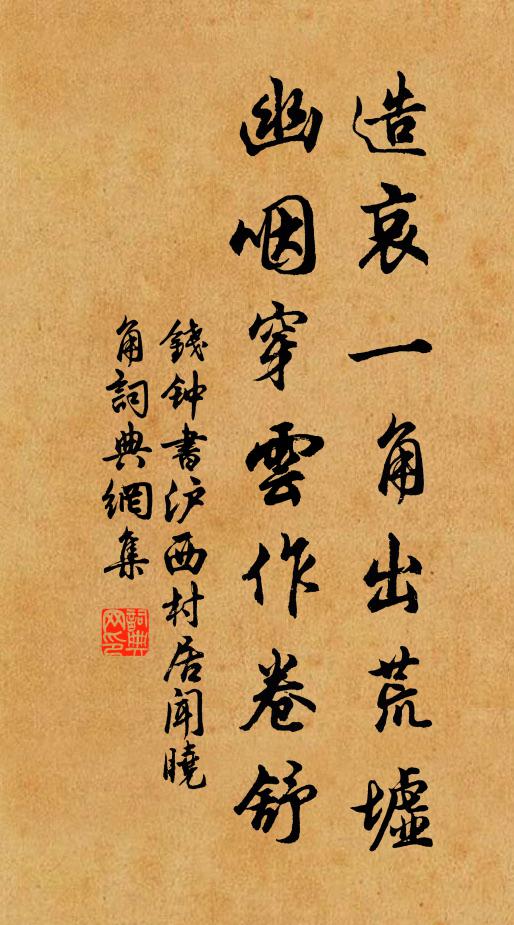 造哀一角出荒墟
幽咽穿雲作卷舒
錢钟書沪西村居闻曉
角詞典網集
詞典
网印